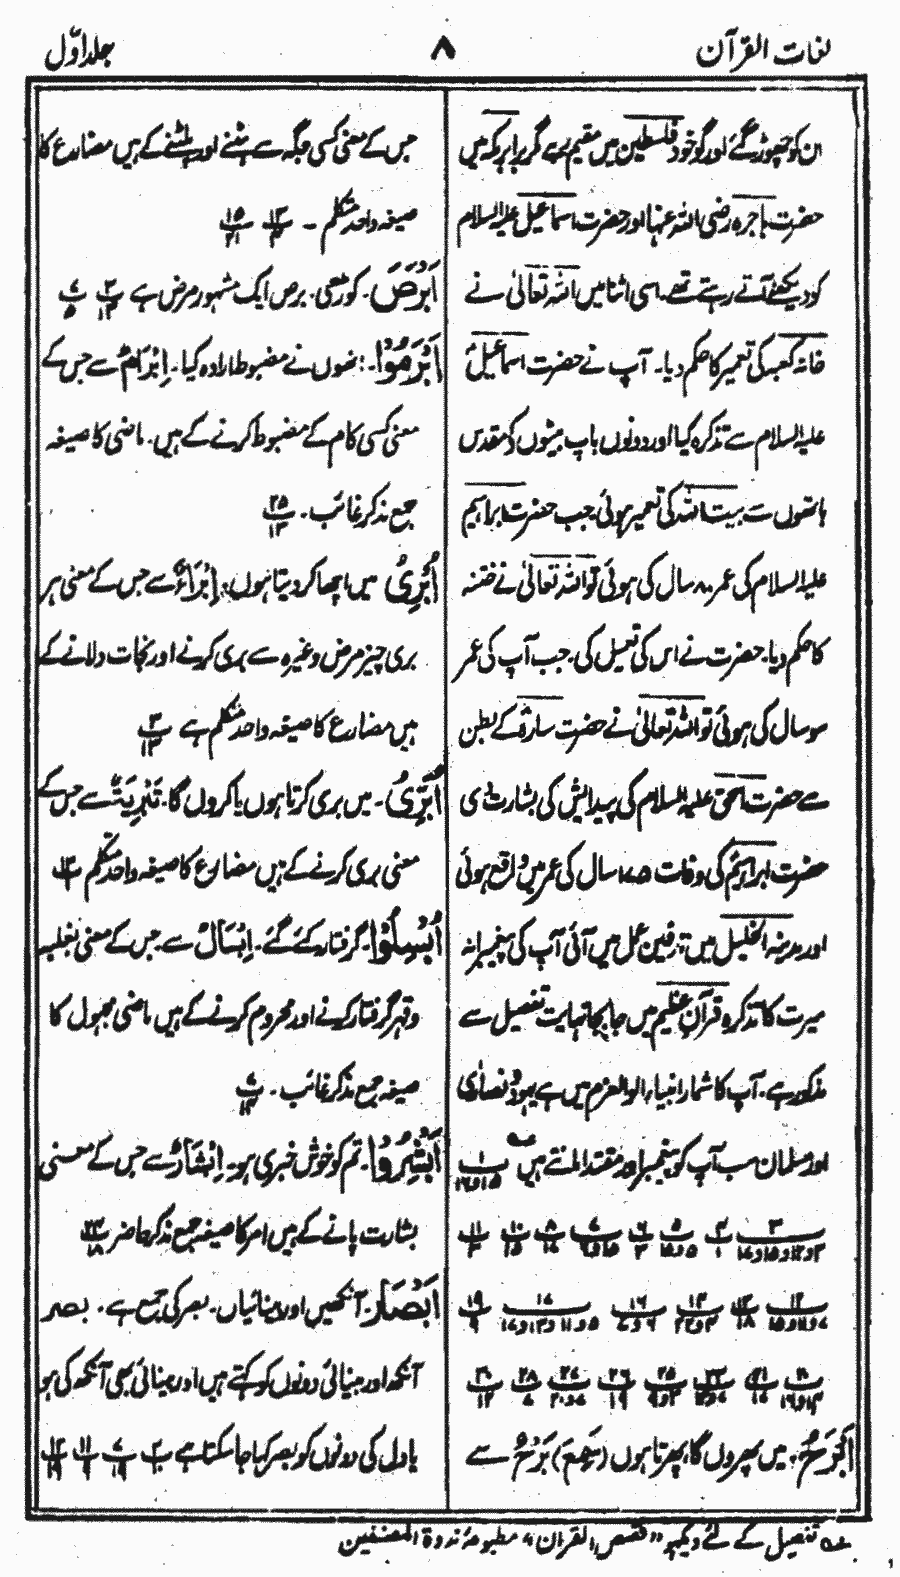 لغات القرآن
۸
جلد اوّل
ان کو چھوڑ گئے اور گو خود فلسطین میں مقیم رہے مگر برابر مکہ میں
حضرت ہاجرہ رضی اللہ عنہا اور حضرت اسماعیل علیہ السلام
کو دیکھنے آتے رہتے تھے۔ اسی اثنا میں اللہ تعالیٰ نے
خانہ کعبہ کی تعمیر کا حکم دیا۔ آپ نے حضرت اسماعیل
علیہ السلام سے تذکرہ کیا اور دونوں باپ بیٹوں کے مقدس
ہاتھوں سے بیت اللہ کی تعمیر ہوئی جب حضرت ابراہیم
علیہ السلام کی عمر ۸۰ سال کی ہوئی تو اللہ تعالیٰ نے ختنہ
کا حکم دیا۔ حضرت نے اس کی تعمیل کی۔ جب آپ کی عمر
سو سال کی ہوئی تو اللہ تعالیٰ نے حضرت سارہؓ کے بطن
سے حضرت اسحٰق علیہ السلام کی پیدائش کی بشارت دی
حضرت ابراہیم کی وفات ۱۷۵ سال کی عمر میں واقع ہوئی
اور مدینہ الخلیل میں تدفین عمل میں آئی آپ کی پیغمبرانہ
سیرت کا تذکرہ قرآن عظیم میں جا بجا نہایت تفصیل سے
مذکور ہے۔ آپ کا شمار انبیاء الوالعزم میں ہے یہود و نصاریٰ
اور مسلمان سب آپ کو پیغمبر اور مقتدا مانتے ہیں
اَبْرَحُ۔ میں پھروں گا، پھرتا ہوں (سَمِعَ) بَرْحٌ سے
جس کے معنی کسی جگہ سے ہٹنے اور ٹلنے کے ہیں مضارع کا
صیغہ واحد متکلم ۔
اَبْرَصَ۔ کوڑھی۔ برص ایک مشہور مرض ہے
اَبْرَمُوْا۔ انھوں نے مضبوط ارادہ کیا۔ اِبْرَامٌ سے جس کے
معنی کسی کام کے مضبوط کرنے کے ہیں۔ ماضی کا صیغہ
جمع مذکر غائب۔ ۲۵ ۱۳
اُبْرِئُ میں اچھا کر دیتا ہوں، اِبْرَاءٌ سے جس کے معنی ہر
بری چیز مرض وغیرہ سے بری کرنے اور نجات دلانے کے
ہیں مضارع کا صیغہ واحد متکلم ہے ۳ ۱۳
اُبَرِّئُ میں بری کرتا ہوں یا کروں گا۔ تَبْرِیَۃٌ سے جس کے
معنی بری کرنے کے ہیں مضارع کا صیغہ واحد متکلم
اُبْسِلُوْا۔ گرفتار کئے گئے۔ اِبْسَالٌ سے۔ جس کے معنی بغلبہ
و قہر گرفتار کرنے اور محروم کرنے کے ہیں ماضی مجہول کا
صیغہ جمع مذکر غائب۔ ۷ ۱۴
اَبْشِرُوْا۔ تم کو خوش خبری ہو۔ اِبْشَارٌ سے جس کے معنی
بشارت پانے کے ہیں امر کا صیغہ جمع مذکر حاضر
اَبْصَار۔ آنکھیں اور بینائیاں۔ بصر کی جمع ہے۔ بصر
آنکھ اور بینائی دونوں کو کہتے ہیں اور بینائی بھی آنکھ کی ہو
یا دل کی دونوں کو بصر کہا جا سکتا ہے
تفصیل کے لئے دیکھو "قصص القرآن" مطبوعہ ندوۃ المصنفین